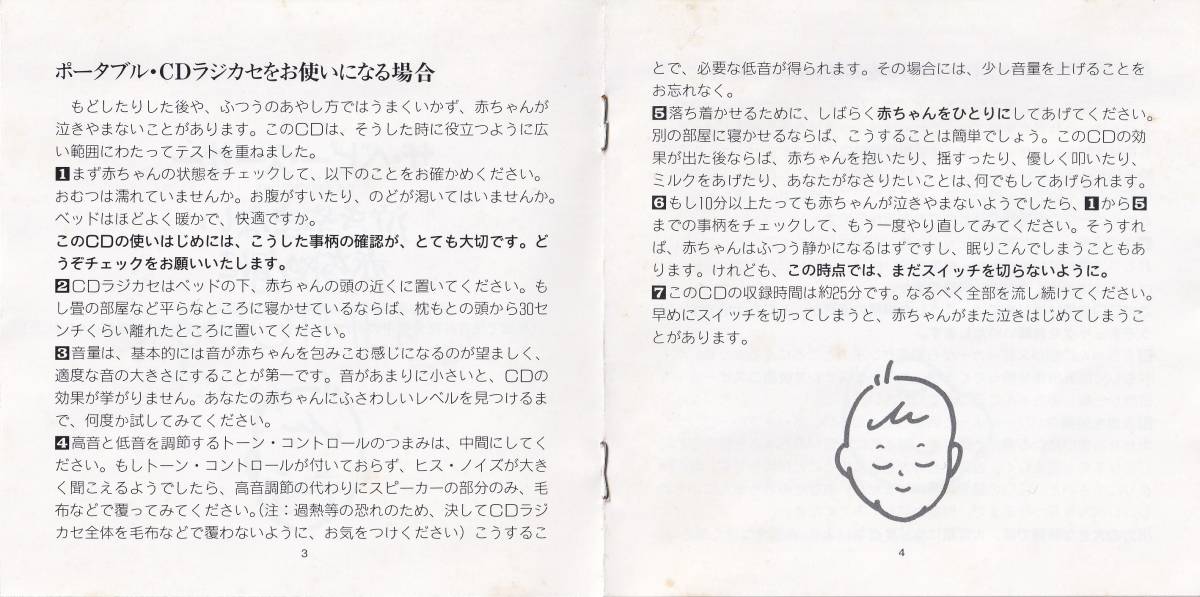 ポータブル・CDラジカセをお使いになる場合
もどしたりした後や、ふつうのあやし方ではうまくいかず、赤ちゃんが
泣きやまないことがあります。このCDは、そうした時に役立つように広
い範囲にわたってテストを重ねました。
1まず赤ちゃんの状態をチェックして、以下のことをお確かめください。
おむつは濡れていませんか。お腹がすいたり、のどが渇いてはいませんか。
ベッドはほどよく暖かで、快適ですか。
このCDの使いはじめには、こうした事柄の確認が、とても大切です。ど
うぞチェックをお願いいたします。
2CDラジカセはベッドの下、赤ちゃんの頭の近くに置いてください。も
し畳の部屋など平らなところに寝かせているならば、枕もとの頭から30セ
ンチくらい離れたところに置いてください。
3音量は、基本的には音が赤ちゃんを包みこむ感じになるのが望ましく、
適度な音の大きさにすることが第一です。音があまりに小さいと、CDの
効果が挙がりません。あなたの赤ちゃんにふさわしいレベルを見つけるま
で、何度か試してみてください。
4高音と低音を調節するトーン・コントロールのつまみは、中間にしてく
ださい。もしトーン・コントロールが付いておらず、ヒス・ノイズが大き
く聞こえるようでしたら、高音調節の代わりにスピーカーの部分のみ、毛
布などで覆ってみてください。(注：過熱等の恐れのため、決してCDラジ
カセ全体を毛布などで覆わないように、お気をつけください）こうするこ
3
とで、必要な低音が得られます。その場合には、少し音量を上げることを
お忘れなく。
5落ち着かせるために、しばらく赤ちゃんをひとりにしてあげてください。
別の部屋に寝かせるならば、こうすることは簡単でしょう。このCDの効
果が出た後ならば、赤ちゃんを抱いたり、揺すったり、優しく叩いたり、
ミルクをあげたり、あなたがなさりたいことは、何でもしてあげられます。
6もし10分以上たっても赤ちゃんが泣きやまないようでしたら、1から5
までの事柄をチェックして、もう一度やり直してみてください。そうすれ
ば、赤ちゃんはふつう静かになるはずですし、眠りこんでしまうこともあ
ります。けれども、この時点では、まだスイッチを切らないように。
7このCDの収録時間は約25分です。なるべく全部を流し続けてください。
早めにスイッチを切ってしまうと、赤ちゃんがまた泣きはじめてしまうこ
とがあります。
4